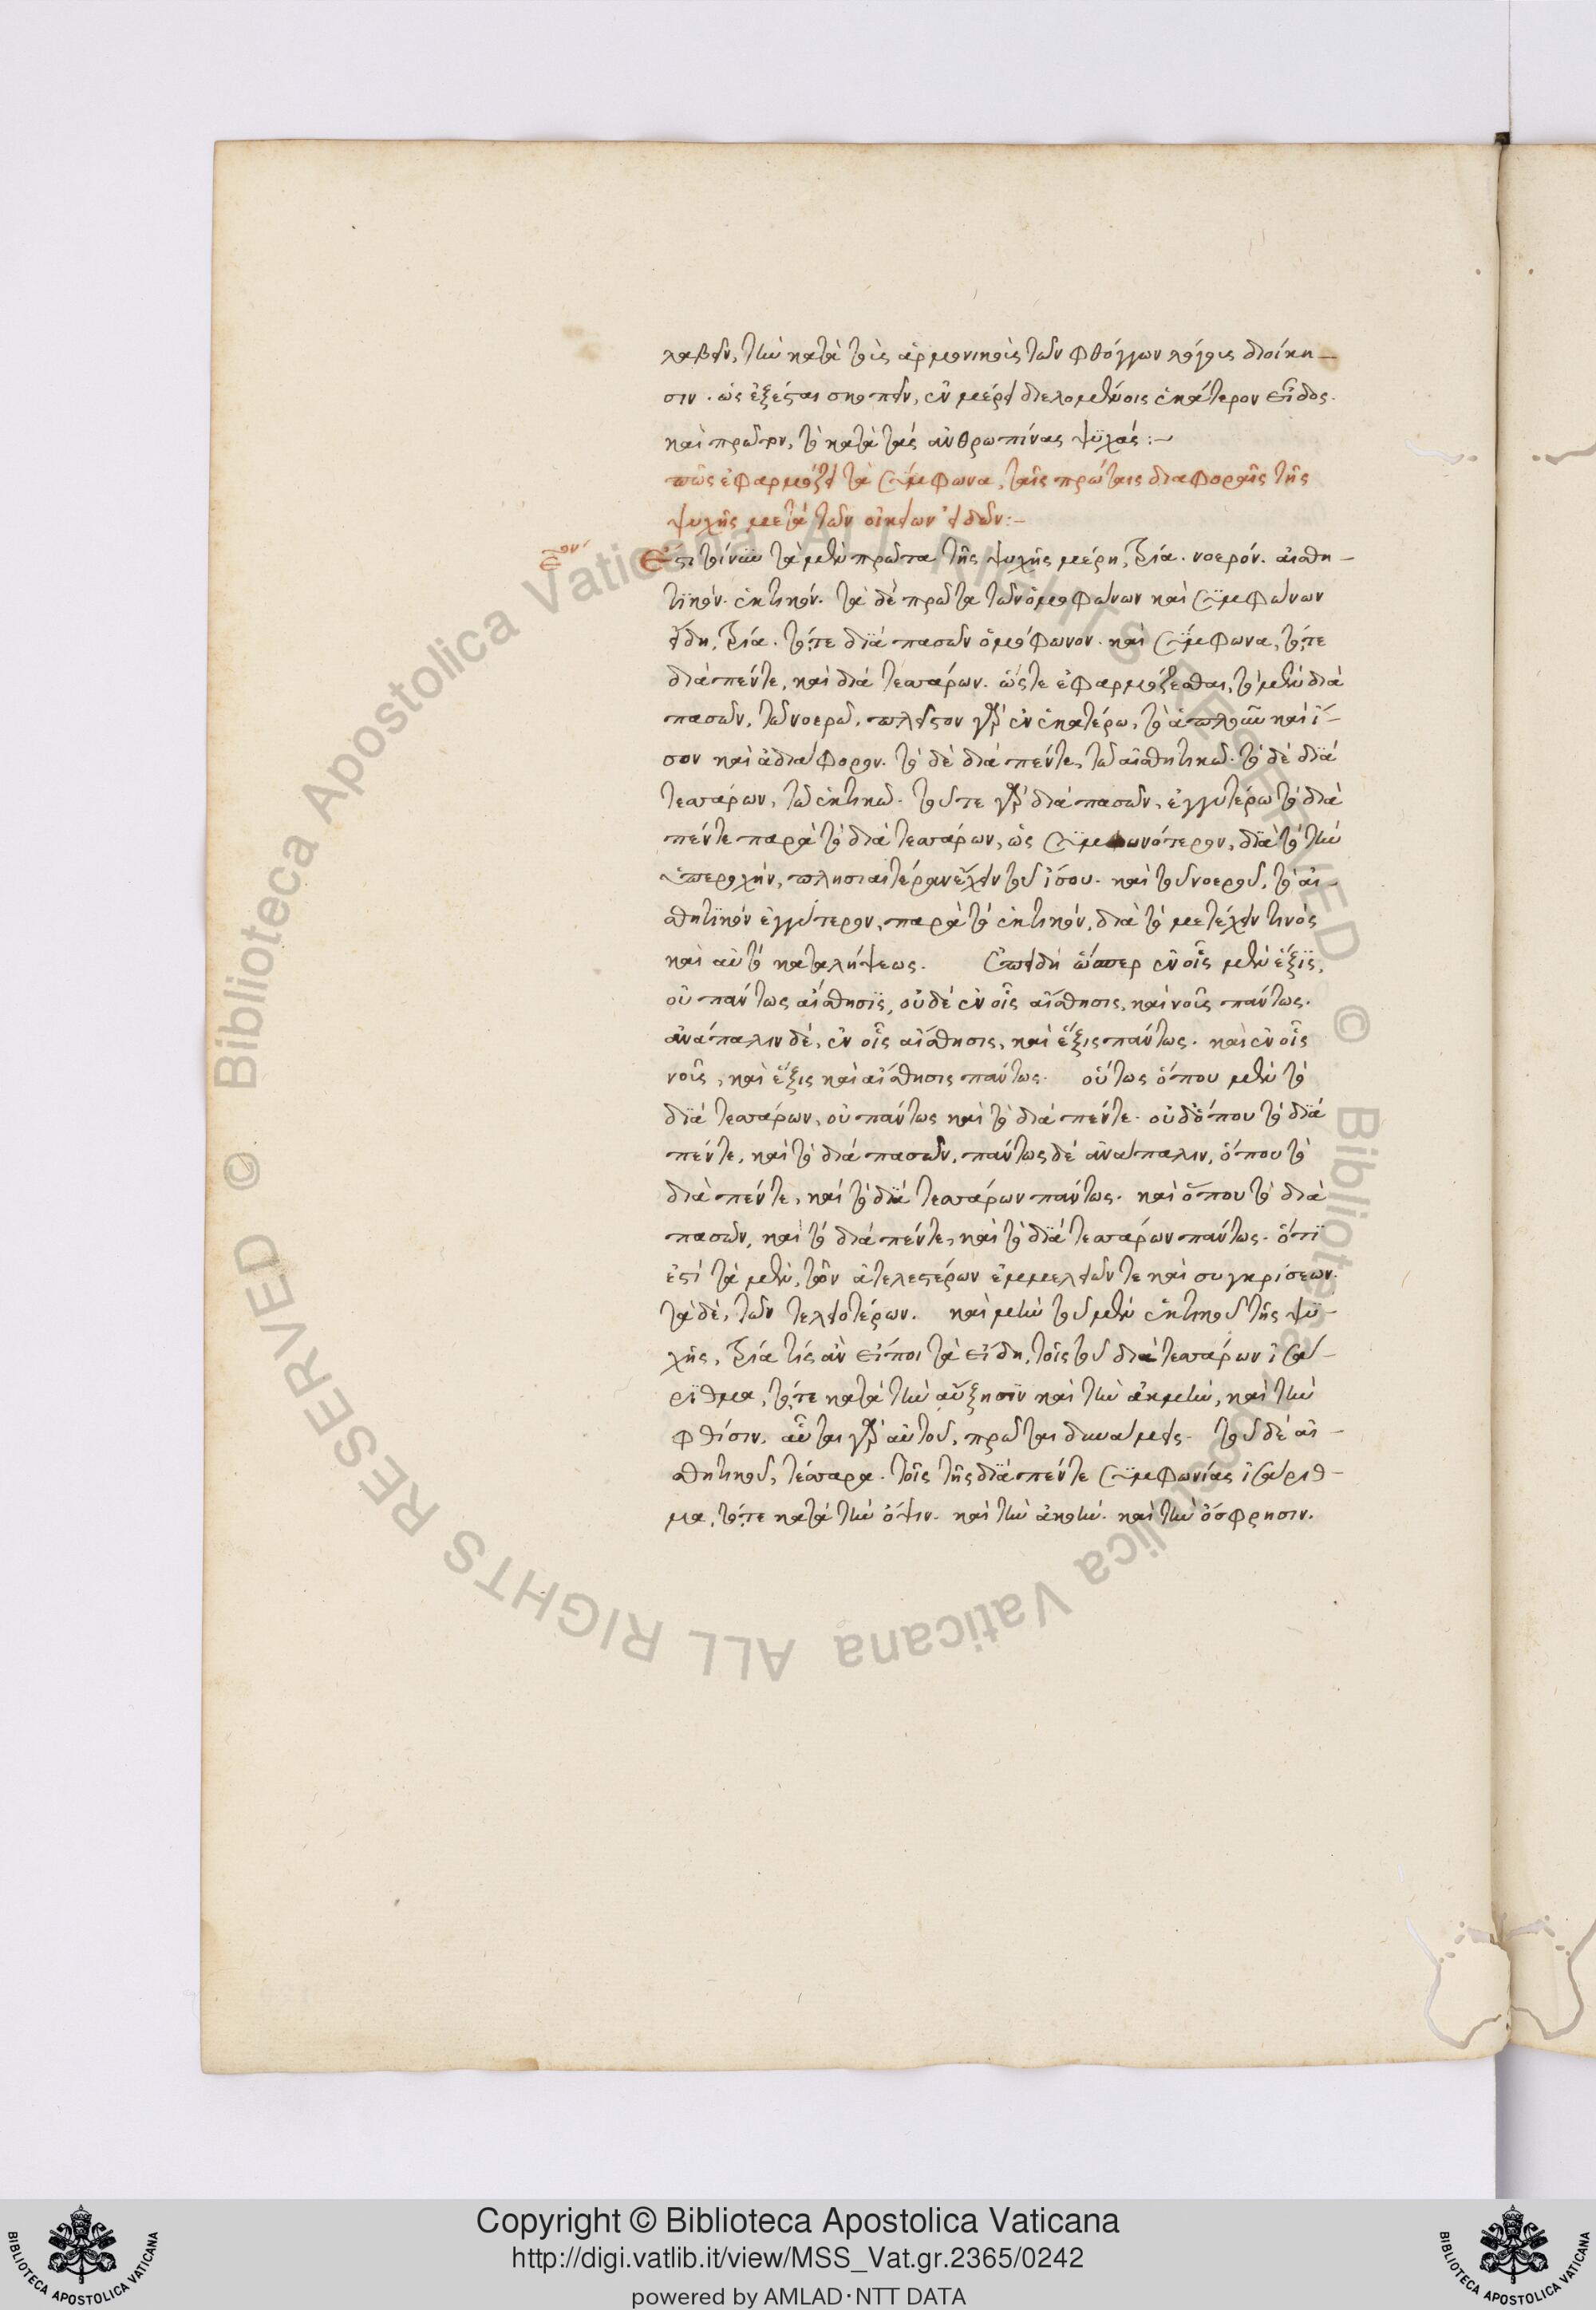 λαβεῖν, τὴν κατὰ τοὺς ἁρμονικοὺς τῶν φθόγγων λόγους διοίκη-
σιν. ὡς ἐξέσται σκοπεῖν, ἐν μέρει διελομένοις ἑκάτερον εἶδος.
καὶ πρῶτον, τὸ κατὰ τὰς ἀνθρωπίνας ψϋχάς:~
πῶς ἐφαρμόζει τὰ σύμφωνα, ταῖς πρώταις διαφοραῖς τῆς
ψυχῆς μετὰ τῶν οἰκείων εἰδῶν:~
ε̄ον
Ἔστι τοίνϋν τὰ μὲν πρῶτα τῆς ψυχῆς μέρη, τρία. νοερόν. αἰσθη-
τϊκόν. ἑκτικόν. τὰ δὲ πρῶτα τῶν ὁμοφώνων καὶ σϋμφώνων
εἴδη, τρία. τό, τε δϊὰ πασῶν ὁμόφωνον. καὶ σύμφωνα, τό, τε
διὰ πέντε, καὶ διὰ τεσσάρων. ὥστε ἐφαρμόζεσθαι, τὸ μὲν διὰ
πασῶν, τῶ νοερῶ, πλεῖστον γὰρ ἐν ἑκατέρω, τὸ ἁπλοῦν καὶ ἴ-
σον καὶ ἀδιάφορον. τὸ δὲ διὰ πέντε, τῶ αἰσθητικῶ. τὸ δὲ δϊὰ
τεσσάρων, τῶ ἑκτικῶ. τοῦ τε γὰρ διὰ πασῶν, ἐγγυτέρω τὸ διὰ
πέντε παρὰ τὸ διὰ τεσσάρων, ὡς σϋμφωνότερον, δϊὰ τὸ τὴν
ὑπεροχὴν, πλησιαιτέραν ἔχειν τοῦ ἴσου. καὶ τοῦ νοεροῦ, τὸ αἰ-
σθητϊκὸν ἐγγύτερον, παρὰ τὸ ἑκτικόν, διὰ τὸ μετέχειν τινὸς
καὶ αὐτὸ καταλήψεως. Ἐπειδὴ ὥσπερ ἐν οἷς μὲν ἕξϊς,
οὐ πάντως αἴσθησϊς, οὐδὲ ἐν οἷς αἴσθησις, καὶ νοῦς πάντως.
ἀνάπαλιν δὲ, ἐν οἷς αἴσθησις, καὶ ἕξις πάντως. καὶ ἐν οἷς
νοῦς, καὶ ἕξις καὶ αἴσθησις πάντως. οὕτως ὅπου μὲν τὸ
δϊὰ τεσσάρων, οὐ πάντως καὶ τὸ διὰ πέντε. οὐδ' ὅπου τὸ δϊὰ
πέντε, καὶ τὸ διὰ πασῶν, πάντως δὲ ἀνάπαλιν, ὅπου τὸ
διὰ πέντε, καὶ τὸ δϊὰ τεσσάρων πάντως. καὶ ὅπου τὸ διὰ
πασῶν, καὶ τὸ διὰ πέντε, καὶ τὸ δϊὰ τεσσάρων πάντως. ὅτϊ
ἐστὶ τὰ μὲν, τῶν ἀτελεστέρων ἐμμελειῶν τε καὶ συγκρίσεων.
τὰ δὲ, τῶν τελειοτέρων. καὶ μὴν τοῦ μὲν ἑκτικοῦ τῆς ψϋ-
χῆς, τρία τις ἂν εἴποι τὰ εἴδη, τοῖς τοῦ διὰ τεσσάρων ἰσά-
ρϊθμα, τό, τε κατὰ τὴν αὔξησϊν καὶ τὴν ἀκμὴν, καὶ τὴν
φθίσιν. αὗται γὰρ αὐτοῦ, πρῶται δυνάμεις. τοῦ δὲ αἰ-
σθητικοῦ, τέσσαρα. τοῖς τῆς δϊὰ πέντε σϋμφωνίας ἰσάριθ-
μα, τό, τε κατὰ τὴν ὄψιν. καὶ τὴν ἀκοὴν. καὶ τὴν ὄσφρησιν.
Copyright © Biblioteca Apostolica Vaticana
http://digi.vatlib.it/view/MSS_Vat.gr.2365/0242
powered by AMLAD·NTT DATA
BIBLIOTECA APOSTOLICA VATICANA
BIBLIOTECA APOSTOLICA VATICANA
© Biblioteca Apostolica Vaticana ALL RIGHTS RESERVED
© Biblioteca Apostolica Vaticana ALL RIGHTS RESERVED